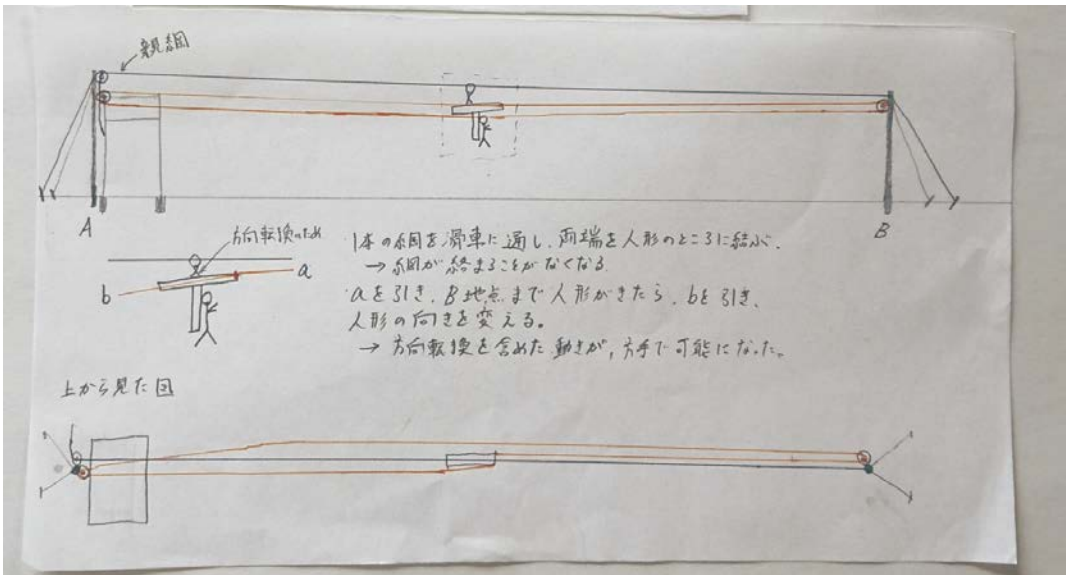 親綱
A
B
方向転換のため
a
b
1本の綱を滑車に通し、両端を人形のところに結ぶ。
→ 綱が絡まることがなくなる
aを引き、B地点まで人形がきたら、bを引き、
人形の向きを変える。
→ 方向転換を含めた動きが、片手で可能になった。
上から見た図